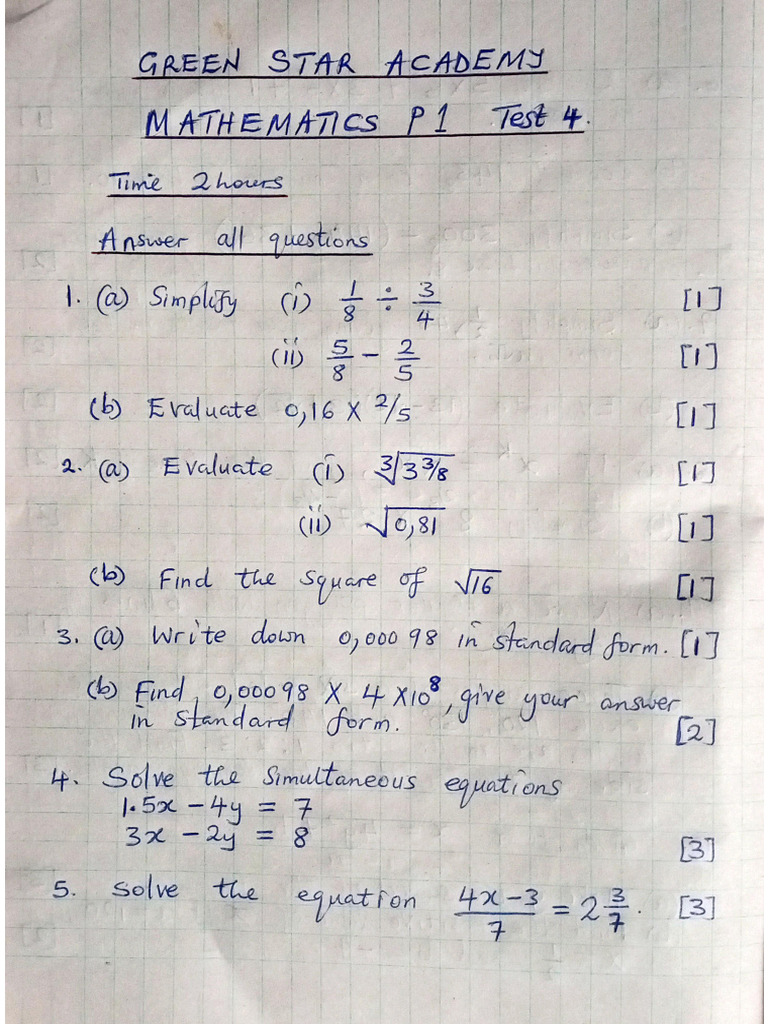 GREEN STAR ACADEMY
MATHEMATICS P1 Test 4.
Time 2 hours
Answer all questions
1. (a) Simplify (i) 1/8 ÷ 3/4 [1]
(ii) 5/8 − 2/5 [1]
(b) Evaluate 0,16 × 2/5 [1]
2. (a) Evaluate (i) ∛(3 3/8) [1]
(ii) √0,81 [1]
(b) Find the square of √16 [1]
3. (a) Write down 0,00098 in standard form. [1]
(b) Find 0,00098 × 4 × 10⁸, give your answer
in standard form. [2]
4. Solve the simultaneous equations
1.5x − 4y = 7
3x − 2y = 8 [3]
5. Solve the equation (4x − 3)/7 = 2 3/7. [3]